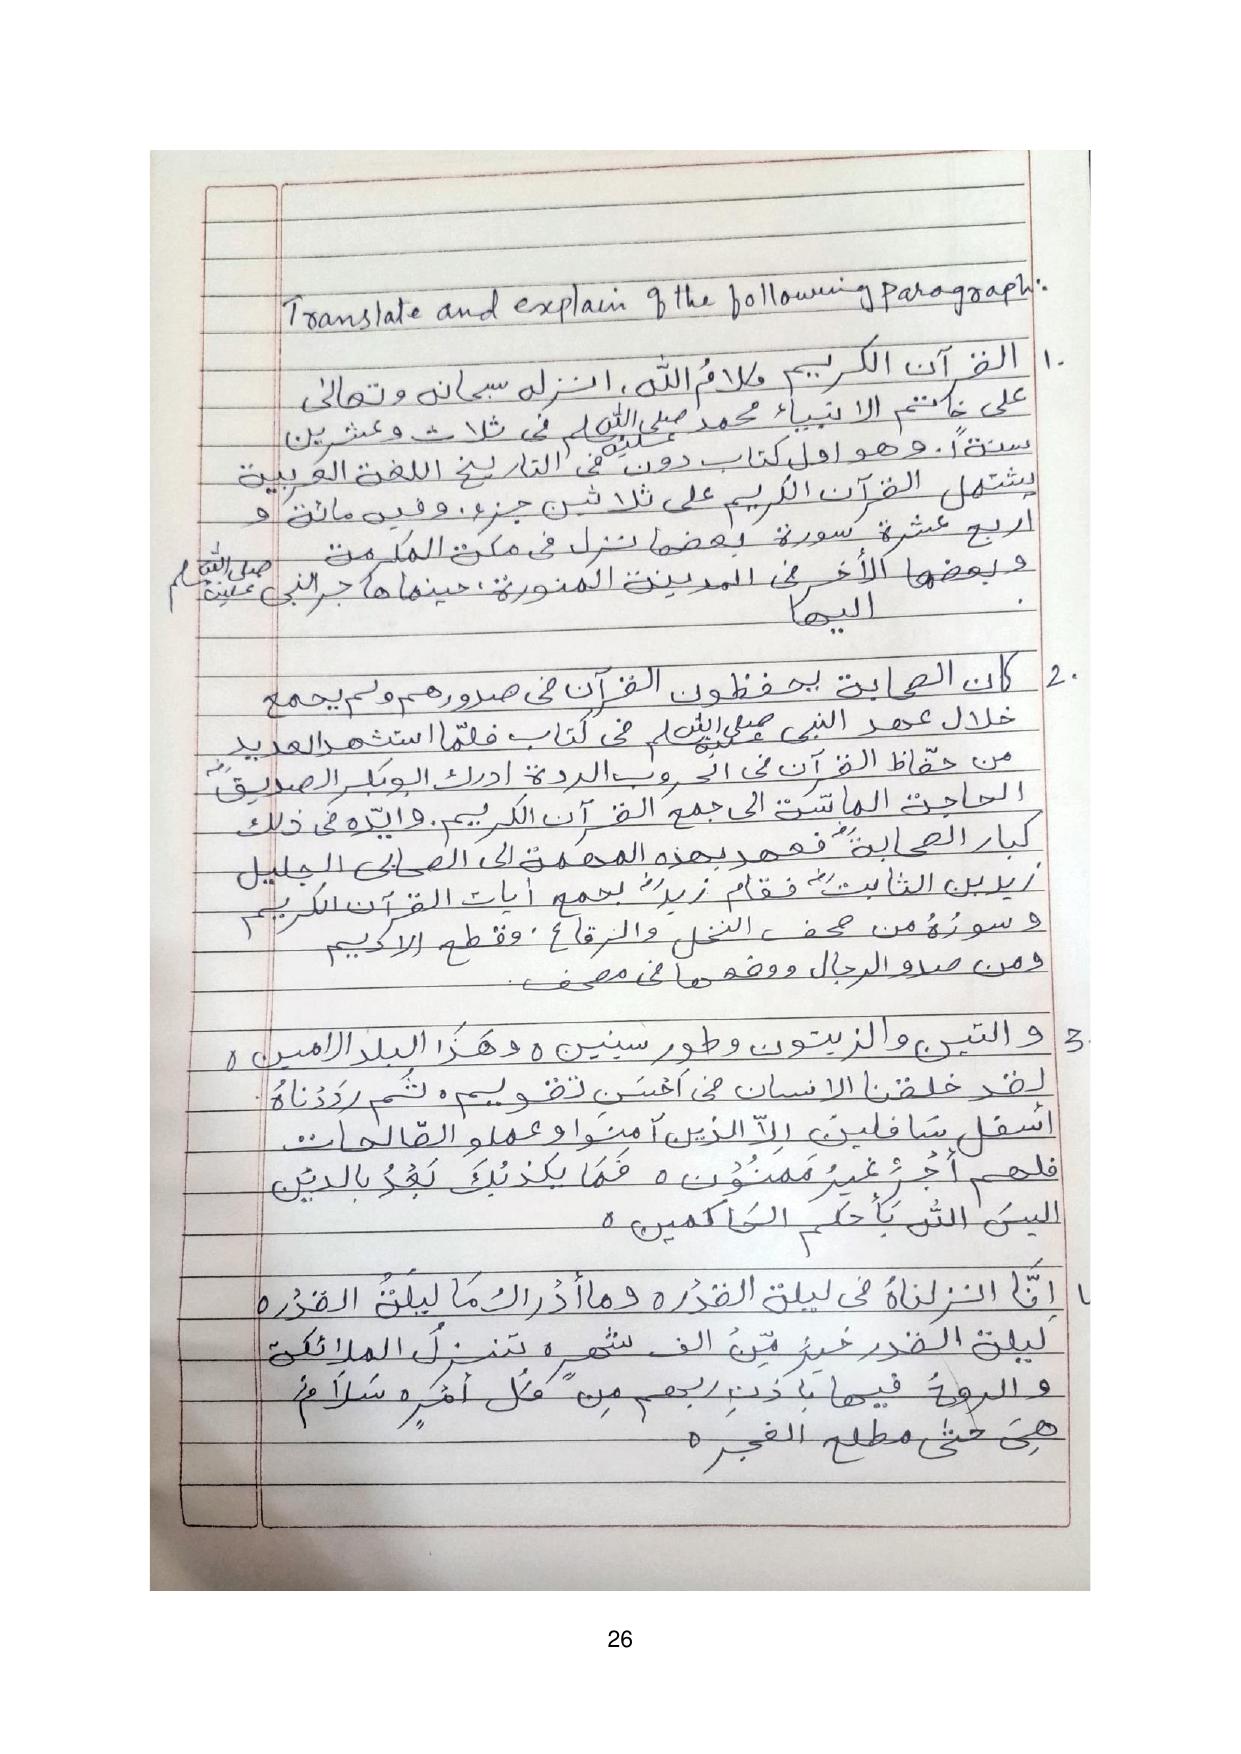 Translate and explain of the following paragraph:
1. القرآن الكريم كلامُ الله، انزله سبحانه وتعالى
على خاتم الانبياء محمد صلى الله عليه وسلم فى ثلاث وعشرين
سنةً. وهو اول كتاب دون فى التاريخ اللغة العربية
يشتمل القرآن الكريم على ثلاثين جزء. وفيه مائة و
اربع عشرة سورة بعضها نزل فى مكة المكرمة
وبعضها الأخر فى المدينة المنورة، حينما هاجر النبي صلى الله عليه وسلم
اليها
2. كان الصحابة يحفظون القرآن فى صدورهم ولم يجمع
خلال عهد النبى صلى الله عليه وسلم فى كتاب فلمّا استشهد العديد
من حفّاظ القرآن فى الحروب الردة ادرك ابوبكر الصديق
الحاجة الماسّة الى جمع القرآن الكريم. وايّده فى ذلك
كبار الصحابة فعهد بهذه المهمة الى الصحابى الجليل
زيد بن الثابت فقام زيد بجمع أيات القرآن الكريم
وسورُهُ من صحف النخل والرقاع، وقطع الاديم
ومن صدو الرجال ووضعها فى مصحف.
3. والتين والزيتون وطور سينين ٥ وهَذَا البلد الامين ٥
لقد خلقنا الانسان فى اَحْسَنِ تقويم ٥ ثُم رَدَدْنَاهُ
اسفل سَافلين اِلاّ الذين آمنوا وعملو الصّالحات
فلهم أَجْرٌ غيرُ مَمنُوْن ٥ فَمَا يكذبُكَ بَعْدُ بالديْن
اليسَ اللهُ بَأحكم الحَاكمين ٥
اِنَّا انزلناهُ فى ليلة القدْر ٥ وما أدْراكَ مَا ليلَةُ القدْر ٥
ليلة القدر خيرٌ مِّنْ الف شهر ٥ تنزلُ الملائكة
والروحُ فيها بِاذنِ ربهم مِن كُل أمْرٍ ٥ سَلاَمٌ
هِىَ حتى مطلع الفجر ٥
26